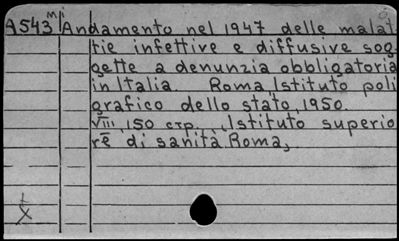 A543 м/ Andamento nel 1947 delle malat
tie infettive e diffusive sog
gette a denunzia obbligatoria
in Italia. Roma, Istituto poli
grafico dello stato, 1950.
VIII, 150 стр. „Istituto superio
re di sanità Roma„